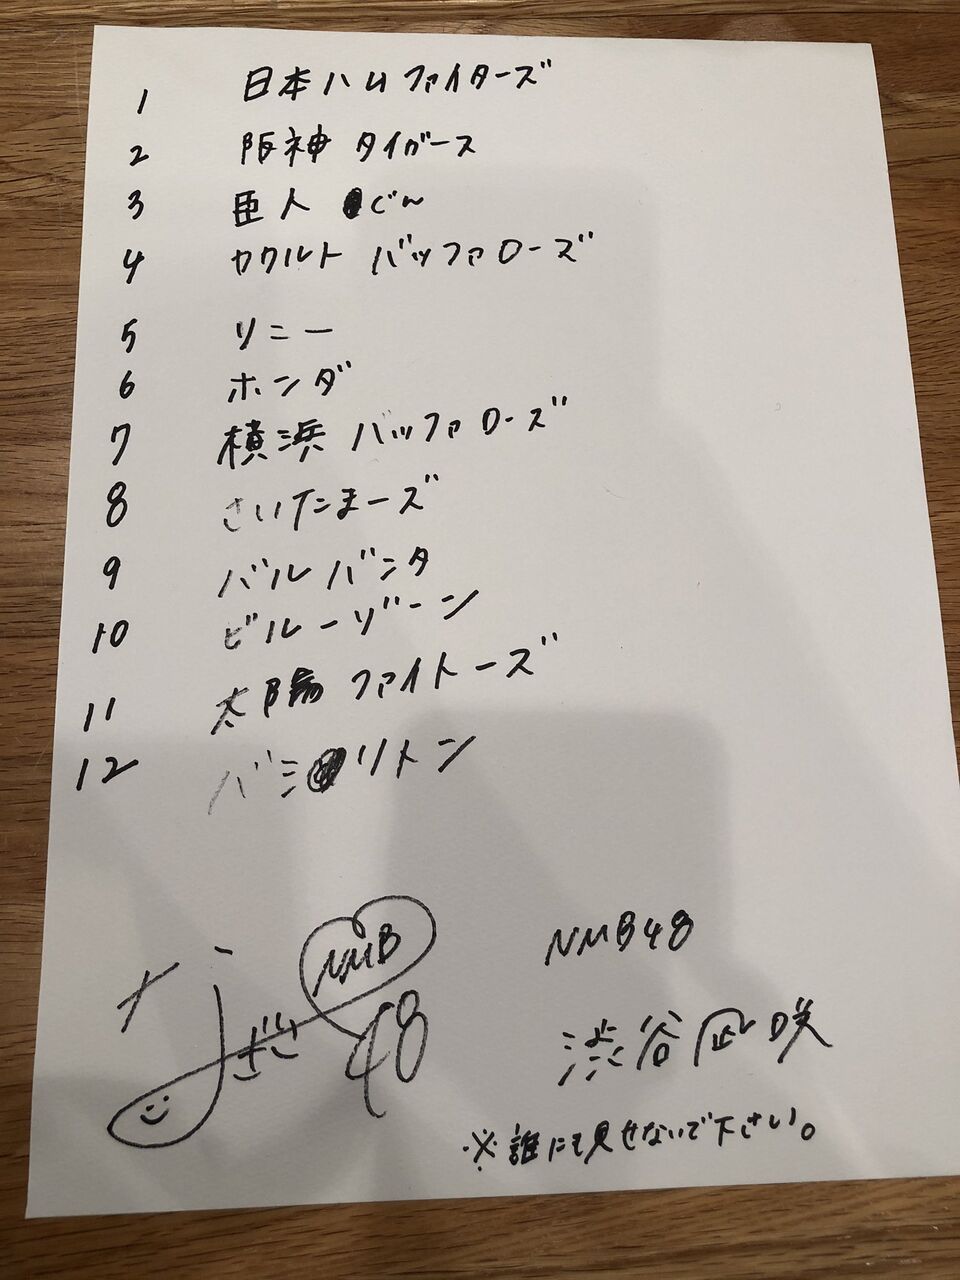 1 日本ハムファイターズ
2 阪神 タイガース
3 臣人 じん
4 ヤクルト バッファローズ
5 ソニー
6 ホンダ
7 横浜 バッファローズ
8 さいたまーズ
9 バルバンタ
10 ビルーゾーン
11 太陽 ファイトーズ
12 バミリトン
なぎさ
NMB
48
NMB48
渋谷凪咲
※誰にも見せないで下さい。